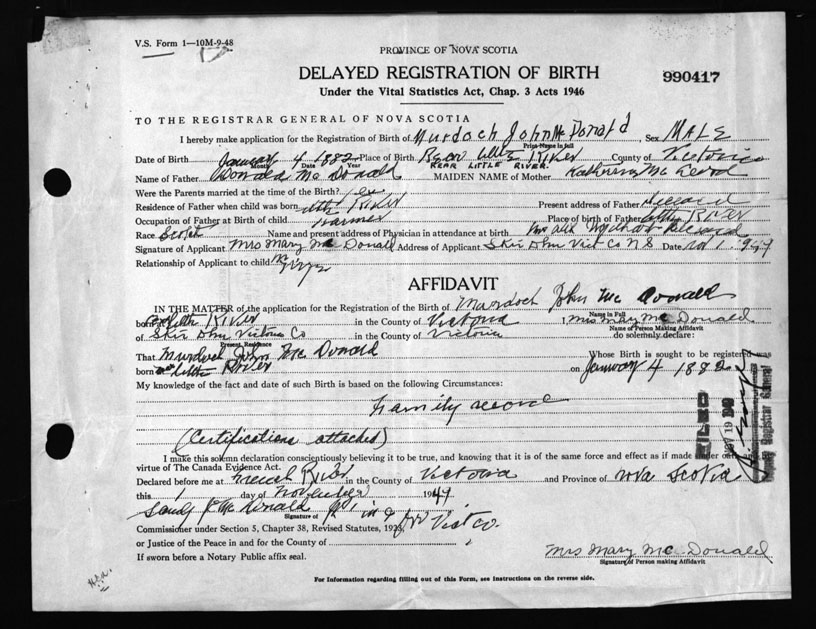 V.S. Form 1—10M-9-48
PROVINCE OF NOVA SCOTIA
DELAYED REGISTRATION OF BIRTH
990417
Under the Vital Statistics Act, Chap. 3 Acts 1946
TO THE REGISTRAR GENERAL OF NOVA SCOTIA
I hereby make application for the Registration of Birth of Murdoch John Mc Donald, Sex MALE
Print Name in full
Date of Birth January 4 1882 Place of Birth Rear Little RIVER County of Victoria
Month Date Year REAR LITTLE RIVER.
Name of Father Donald Mc Donald MAIDEN NAME of Mother Katherine Mc Leod
Were the Parents married at the time of the Birth? Yes
Residence of Father when child was born Little RIVER Present address of Father Deceased
Occupation of Father at Birth of child Farmer Place of birth of Father Little RIVER
Race Scotch Name and present address of Physician in attendance at birth Mrs Alex Deceased
Signature of Applicant Mrs Mary Mc Donald Address of Applicant Skir Dhu Vict Co N S Date Nov 1, 1949
Relationship of Applicant to child
AFFIDAVIT
IN THE MATTER of the application for the Registration of the Birth of Murdoch John Mc Donald
Name in Full
born at Little RIVER in the County of Victoria I Mrs Mary Mc Donald
Name of Person Making Affidavit
of Skir Dhu Victoria Co in the County of Victoria do solemnly declare:
Present Residence
That Murdoch John Mc Donald Whose Birth is sought to be registered was
born at Little River on January 4 1882
My knowledge of the fact and date of such Birth is based on the following Circumstances:
Family record
(Certifications attached)
FILED
Registrar General
I make this solemn declaration conscientiously believing it to be true, and knowing that it is of the same force and effect as if made under oath and by
virtue of The Canada Evidence Act.
Declared before me at River in the County of Victoria and Province of Nova Scotia
this 1 day of November 1949
Sandy Mc Donald J P in & for Vict Co.
Signature of
Commissioner under Section 5, Chapter 38, Revised Statutes, 1923
or Justice of the Peace in and for the County of
If sworn before a Notary Public affix seal.
Mrs Mary Mc Donald
Signature of Person making Affidavit
For Information regarding filling out of this Form, see instructions on the reverse side.